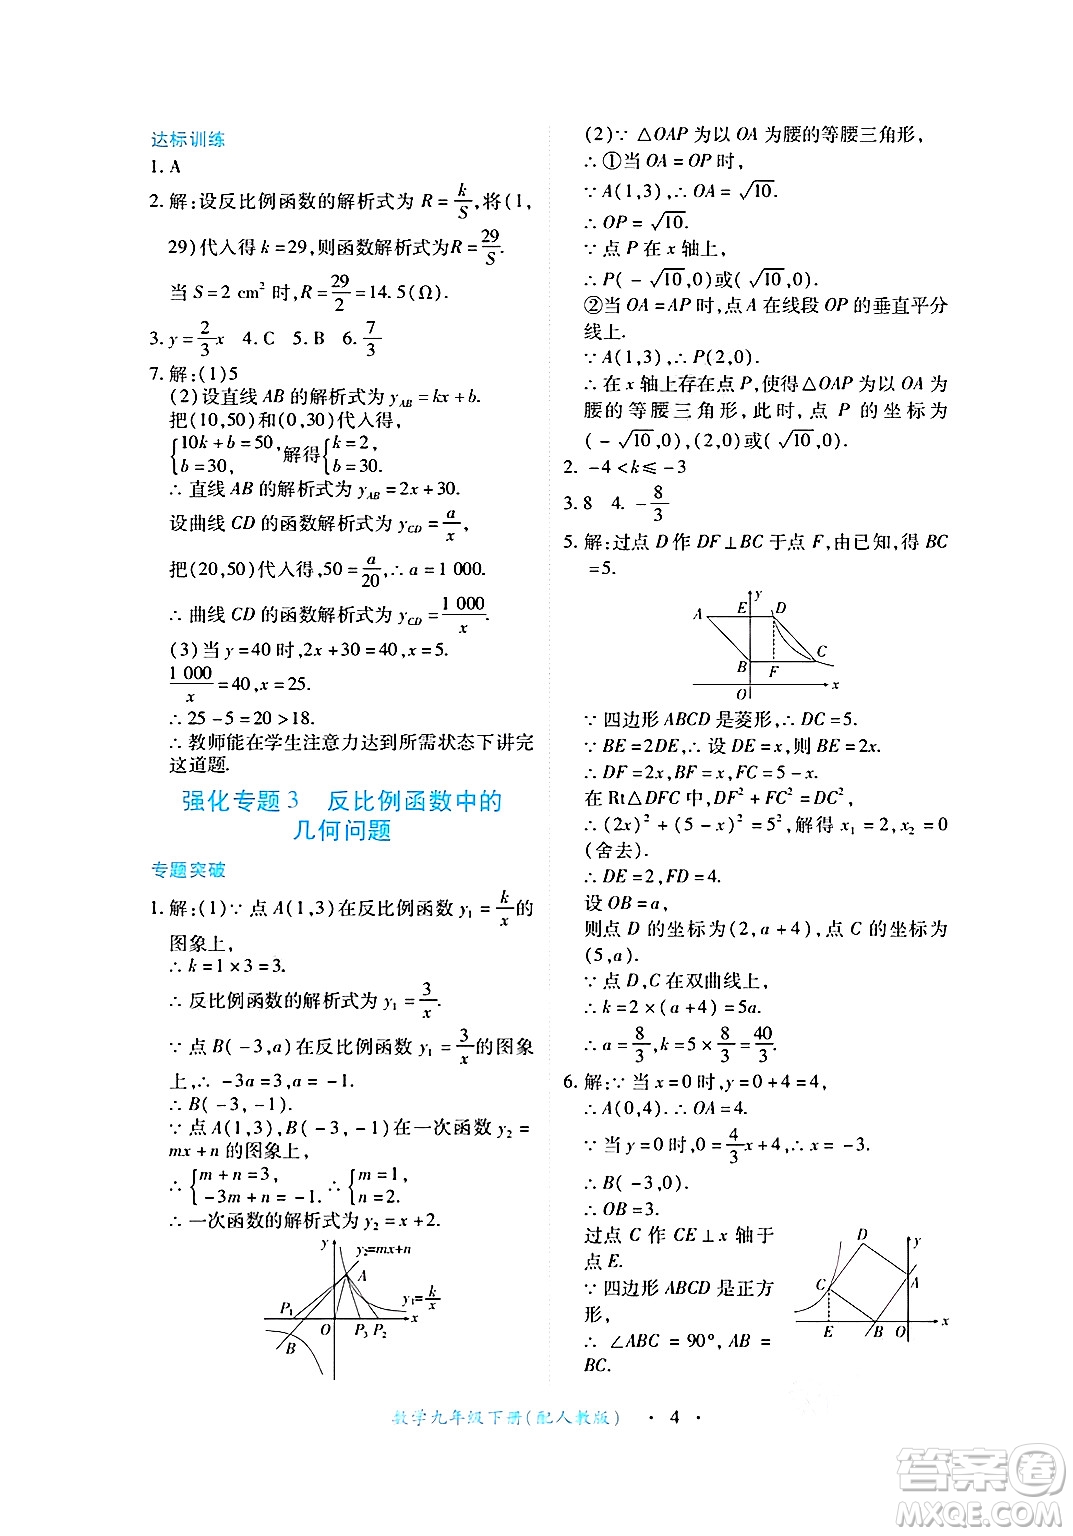 达标训练
1. A
2. 解:设反比例函数的解析式为 R = k/S,将(1,
29)代入得 k = 29,则函数解析式为R = 29/S.
当 S = 2 cm² 时,R = 29/2 = 14. 5(Ω).
3. y = 2/3 x 4. C 5. B 6. 7/3
7. 解:(1)5
(2)设直线 AB 的解析式为 y_AB = kx + b.
把(10,50)和(0,30)代入得,
{10k + b = 50, b = 30, 解得{k = 2, b = 30.
∴ 直线 AB 的解析式为 y_AB = 2x + 30.
设曲线 CD 的函数解析式为 y_CD = a/x,
把(20,50)代入得,50 = a/20,∴ a = 1 000.
∴ 曲线 CD 的函数解析式为 y_CD = 1 000/x.
(3)当 y = 40 时,2x + 30 = 40,x = 5.
1 000/x = 40,x = 25.
∴ 25 - 5 = 20 > 18.
∴ 教师能在学生注意力达到所需状态下讲完
这道题.
强化专题 3 反比例函数中的
几何问题
专题突破
1. 解:(1)∵ 点 A(1,3)在反比例函数 y₁ = k/x 的
图象上,
∴ k = 1 × 3 = 3.
∴ 反比例函数的解析式为 y₁ = 3/x.
∵ 点 B( - 3,a)在反比例函数 y₁ = 3/x 的图象
上,∴ - 3a = 3,a = - 1.
∴ B( - 3, - 1).
∵ 点A(1,3),B( - 3, - 1)在一次函数 y₂ =
mx + n 的图象上,
∴ {m + n = 3, - 3m + n = - 1. ∴ {m = 1, n = 2.
∴ 一次函数的解析式为 y₂ = x + 2.
y
y₂=mx+n
A
y₁=k/x
P₁
O
P₃
P₂
x
B
(2)∵ △OAP 为以 OA 为腰的等腰三角形,
∴ ①当 OA = OP 时,
∵ A(1,3),∴ OA = √10.
∴ OP = √10.
∵ 点 P 在 x 轴上,
∴ P( - √10,0)或(√10,0).
②当 OA = AP 时,点 A 在线段 OP 的垂直平分
线上.
∵ A(1,3),∴ P(2,0).
∴ 在 x 轴上存在点 P,使得 △OAP 为以 OA 为
腰的等腰三角形,此时,点 P 的坐标为
( - √10,0),(2,0)或(√10,0).
2. - 4 < k ≤ - 3
3. 8 4. - 8/3
5. 解:过点 D 作 DF ⊥ BC 于点 F,由已知,得 BC
= 5.
y
A
E
D
B
F
C
O
x
∵ 四边形 ABCD 是菱形,∴ DC = 5.
∵ BE = 2DE,∴ 设 DE = x,则 BE = 2x.
∴ DF = 2x,FC = 5 - x.
在 Rt△DFC 中,DF² + FC² = DC²,
∴ (2x)² + (5 - x)² = 5²,解得 x₁ = 2,x₂ = 0
(舍去).
∴ DE = 2,FD = 4.
设 OB = a,
则点 D 的坐标为(2,a + 4),点 C 的坐标为
(5,a).
∵ 点 D,C 在双曲线上,
∴ k = 2 × (a + 4) = 5a.
∴ a = 8/3,k = 5 × 8/3 = 40/3.
6. 解:∵ 当 x = 0 时,y = 0 + 4 = 4,
∴ A(0,4).∴ OA = 4.
∵ 当 y = 0 时,0 = 4/3 x + 4,∴ x = - 3.
∴ B( - 3,0).
∴ OB = 3.
过点 C 作 CE ⊥ x 轴于
点 E.
∵ 四边形 ABCD 是正方
形,
∴ ∠ABC = 90°,AB =
BC.
D
y
C
A
E
B
O
x
数学九年级下册(配人教版) · 4 ·
答案卷
MXQE.COM